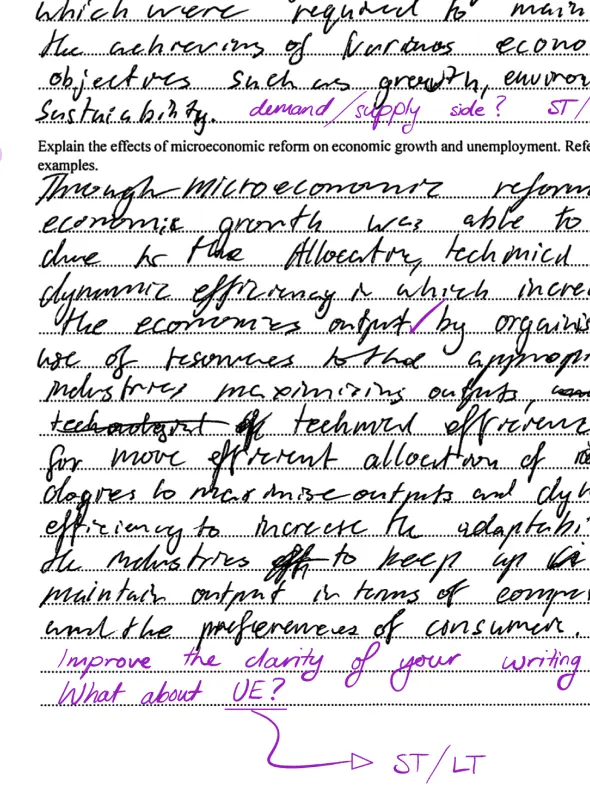 which were required to main
the achieving of various econo
objectives such as growth, environ
Sustaiability. demand/supply side? ST/
Explain the effects of microeconomic reform on economic growth and unemployment. Refe
examples.
Through microeconomic reform
economic growth was able to
due to the Allocative, technical
dynamic efficiency in which increa
the economies output by organis
use of resources to the appropri
industries maximizing outputs,
technical efficienc
for more efficient allocation of
ologies to maximise outputs and dyn
efficiency to increase the adaptabi
the industries to keep up
maintain output in terms of compe
and the preferences of consumer.
Improve the clarity of your writing
What about UE?
ST/LT